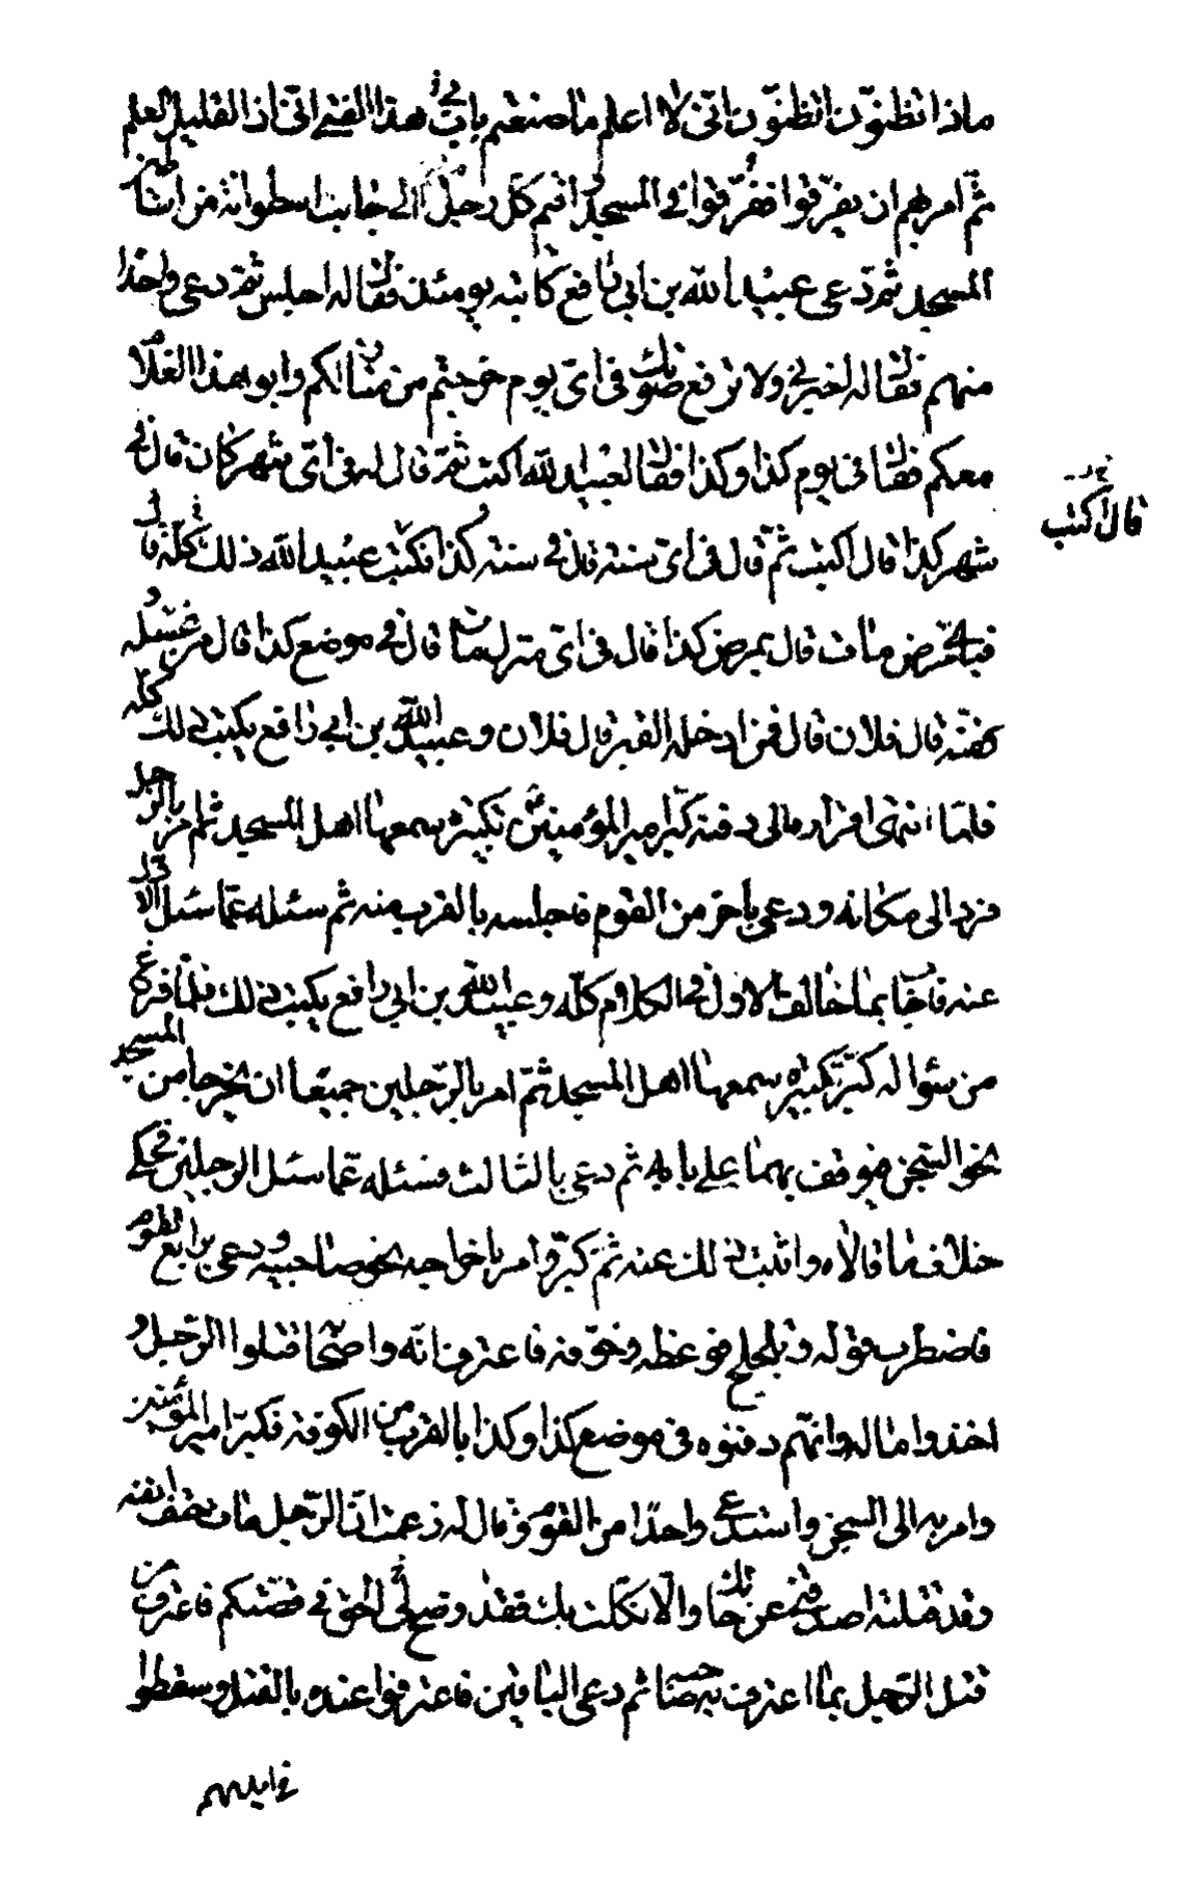 ماذا تظنّون اتظنّون انّى لا اعلم ما صنعتم باب هذا الفتى انّى اذا لقليل العلم
ثمّ امر بهم ان يفرّقوا ففرّقوا في المسجد واقيم كلّ رجل الى جانب اسطوانة من اساطين
المسجد ثم دعى عبيد الله بن ابى رافع كاتبه يومئذ فقال له اجلس ثم دعى واحدا
منهم فقال له اخبرنى ولا ترفع صوتك فى اىّ يوم خرجتم من منازلكم وابو هذا الغلام
معكم فقال فى يوم كذا وكذا فقال لعبيد لله اكتب ثمّ قال له فى اىّ شهر كان قال في
شهر كذا قال اكتب ثمّ قال فى اىّ سنة قال في سنة كذا فكتب عبيد الله ذلك كلّه قال
فباىّ مرض مات قال بمرض كذا قال فى اىّ منزل مات قال في موضع كذا قال من غسّله و
كفنّه قال فلان قال فمن ادخله القبر قال فلان وعبيد الله بن ابي رافع يكتب ذلك كلّه
فلمّا انتهى اقراره الى دفنه كبّر امير المؤمنين تكبيرة سمعها اهل المسجد ثم امر بالرجل
فردّ الى مكانه ودعى باخر من القوم فاجلسه بالقرب منه ثم سئله عمّا سئل الاول
عنه فاجاب بما خالف الاول في الكلام كلّه وعبيد الله بن ابي رافع يكتب ذلك فلمّا فرغ
من سؤاله كبّر تكبيرة سمعها اهل المسجد ثمّ امر بالرّجلين جميعا ان يخرجا من المسجد
نحو السّجن فيوقف بهما على بابه ثم دعى بالثالث فسئله عمّا سئل الرجلين فحكى
خلاف ما قالاه واثبت ذلك عنه ثمّ كبّر وامر باخراجه نحو صاحبيه ودعى برابع القوم
فاضطرب قوله وتلجلج فوعظه وخوّفه فاعترف انّه واصحابه قتلوا الرّجل و
اخذوا ماله وانّهم دفنوه فى موضع كذا وكذا بالقرب من الكوفة فكبّر امير المؤمنين
وامر به الى السجن واستدعى واحدًا من القوم وقال له زعمت انّ الرّجل مات بحتف انفه
وقد قتلته اصدقنى عن حالك والّا نكّلت بك فقد وضح لى الحق في قصّتكم فاعترف من
قتل الرّجل بما اعترف به صاحبه ثم دعى الباقين فاعترفوا عنده بالقتل وسقطوا
في ايديهم
قال اكتب